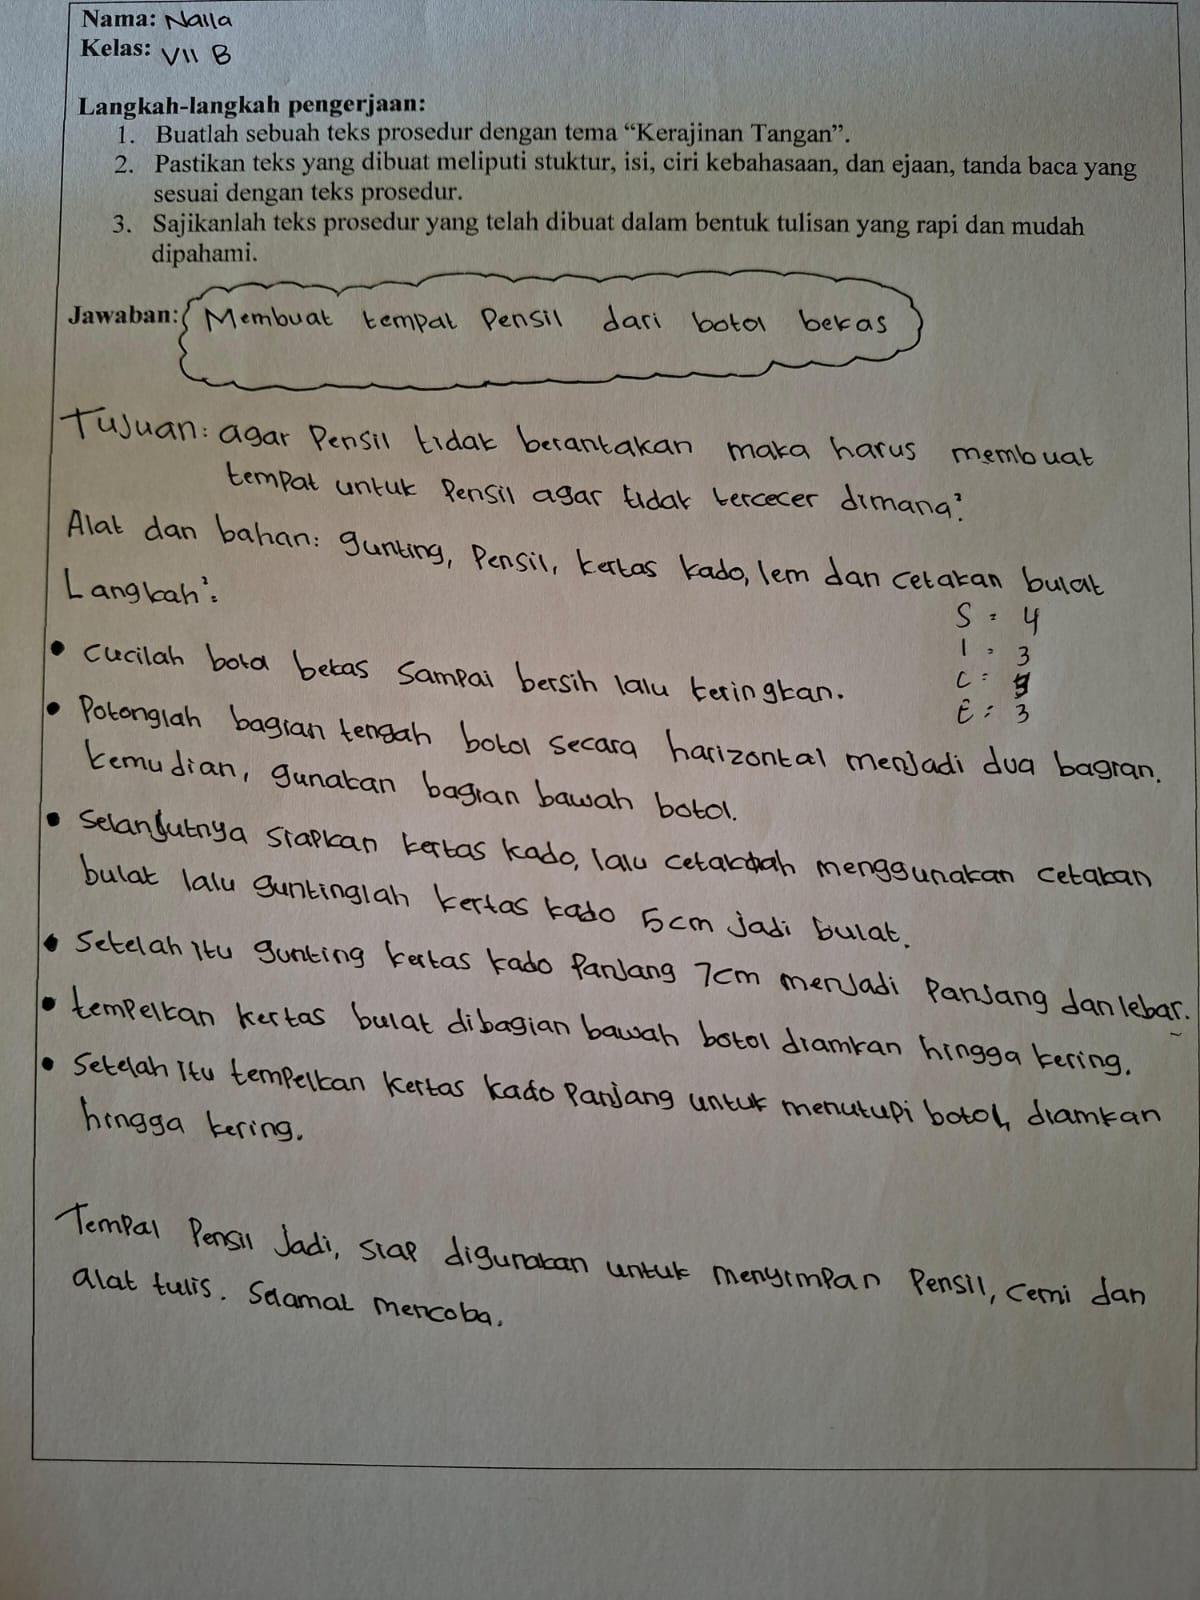 Nama: Naila
Kelas: VII B
Langkah-langkah pengerjaan:
1. Buatlah sebuah teks prosedur dengan tema “Kerajinan Tangan”.
2. Pastikan teks yang dibuat meliputi stuktur, isi, ciri kebahasaan, dan ejaan, tanda baca yang
sesuai dengan teks prosedur.
3. Sajikanlah teks prosedur yang telah dibuat dalam bentuk tulisan yang rapi dan mudah
dipahami.
Jawaban: Membuat tempat Pensil dari botol bekas
Tujuan: agar Pensil tidak berantakan maka harus membuat
tempat untuk Pensil agar tidak tercecer dimana².
Alat dan bahan: gunting, Pensil, kertas kado, lem dan cetakan bulat
Langkah²:
S = 4
I = 3
• cucilah botol bekas sampai bersih lalu keringkan.
C =
E = 3
• Potonglah bagian tengah botol secara harizontal menjadi dua bagian.
kemudian, gunakan bagian bawah botol.
• Selanjutnya siapkan kertas kado, lalu cetaklah menggunakan cetakan
bulat lalu guntinglah kertas kado 5cm jadi bulat.
• Setelah itu gunting kertas kado Panjang 7cm menjadi Panjang dan lebar.
• tempelkan kertas bulat dibagian bawah botol diamkan hingga kering.
• Setelah itu tempelkan kertas kado Panjang untuk menutupi botol, diamkan
hingga kering.
Tempat Pensil Jadi, siap digunakan untuk menyimpan Pensil, cemi dan
alat tulis. Selamat mencoba.